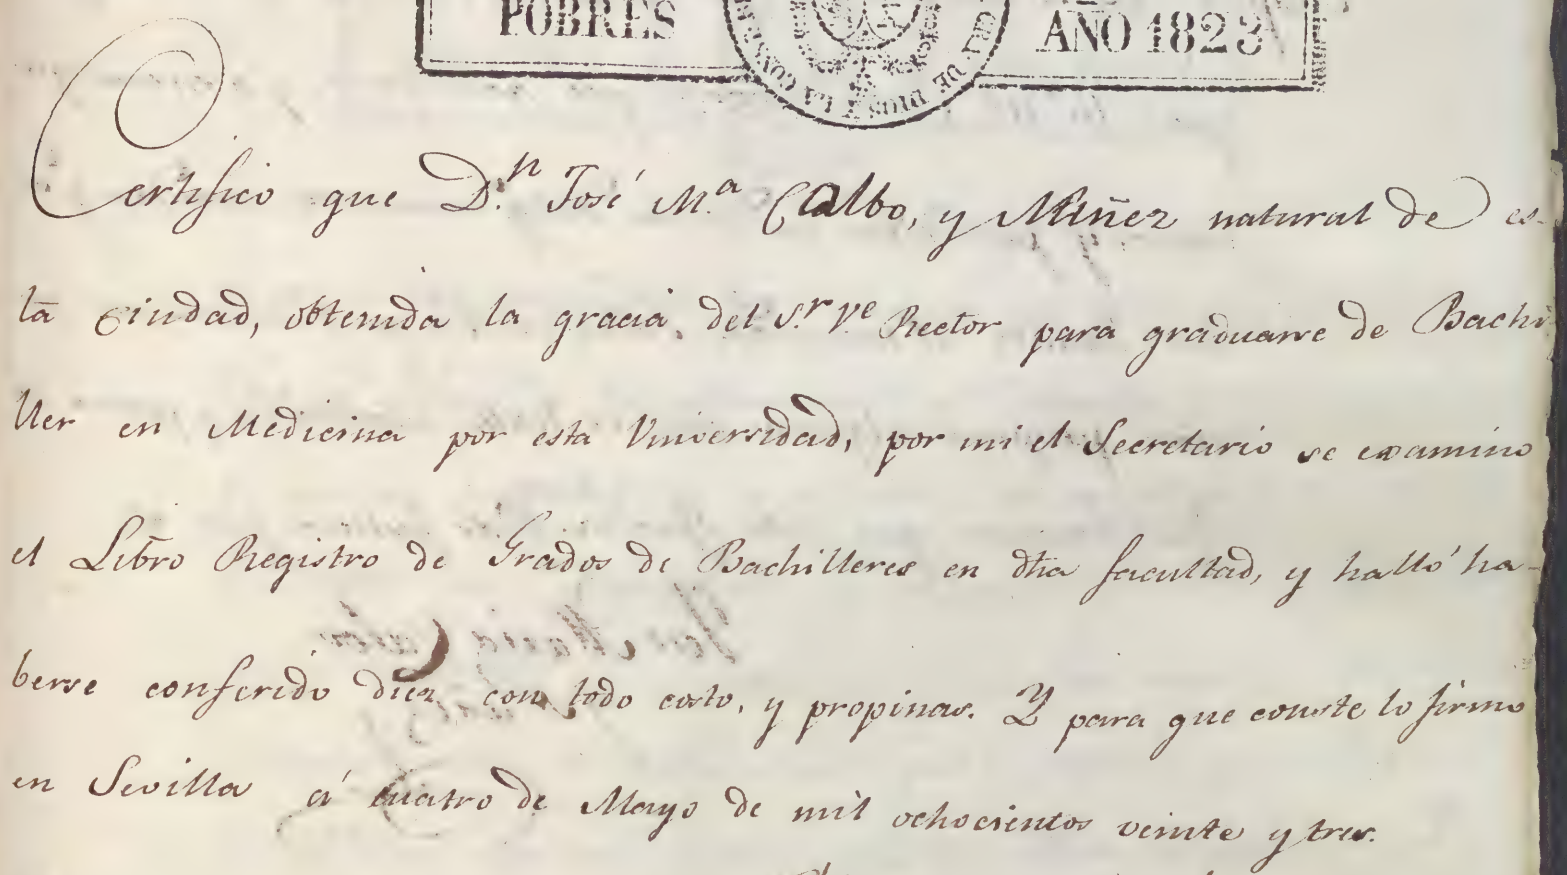 POBRES
AÑO 1823
DE DIOS Y LA CONS
Certifico que D.ⁿ José M.ª Calbo, y Miñez natural de es-
ta Ciudad, obtenida la gracia del S.ʳ V.ᵉ Rector para graduarse de Bachi
ller en Medicina por esta Universidad, por mi el Secretario se examino
el Libro Registro de Grados de Bachilleres en dha facultad, y halló ha-
berse conferido diez con todo costo, y propinas. Y para que conste lo firmo
en Sevilla á cuatro de Mayo de mil ochocientos veinte y tres.